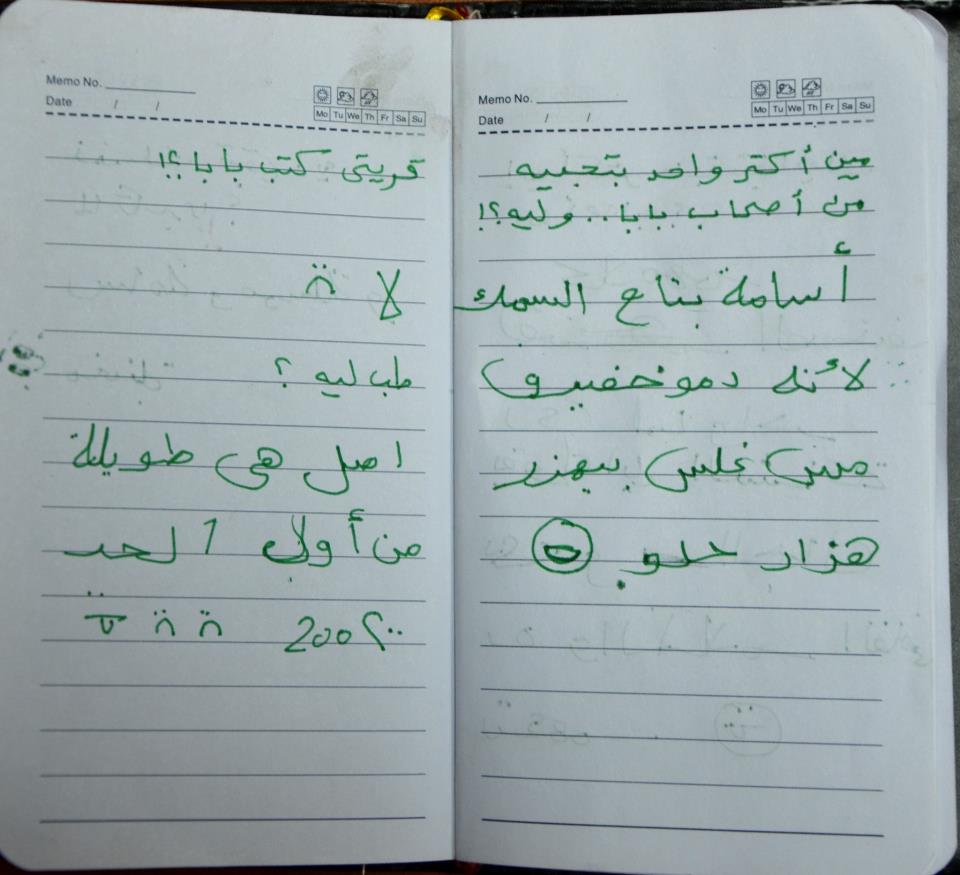 Memo No.
Date / /
Mo Tu We Th Fr Sa Su
مين أكتر واحد بتحبيه
من أصحاب بابا.. وليه؟!
أسامة بتاع السمك
لأنه دمو خفيف و
مش غلس بيهزر
هزار حلو.
Memo No.
Date / /
Mo Tu We Th Fr Sa Su
قريتى كتب بابا؟!
لا
طب ليه؟
اصل هى طويلة
من أول 1 لحد
200